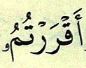 أَقْرَرْتُمُۥ